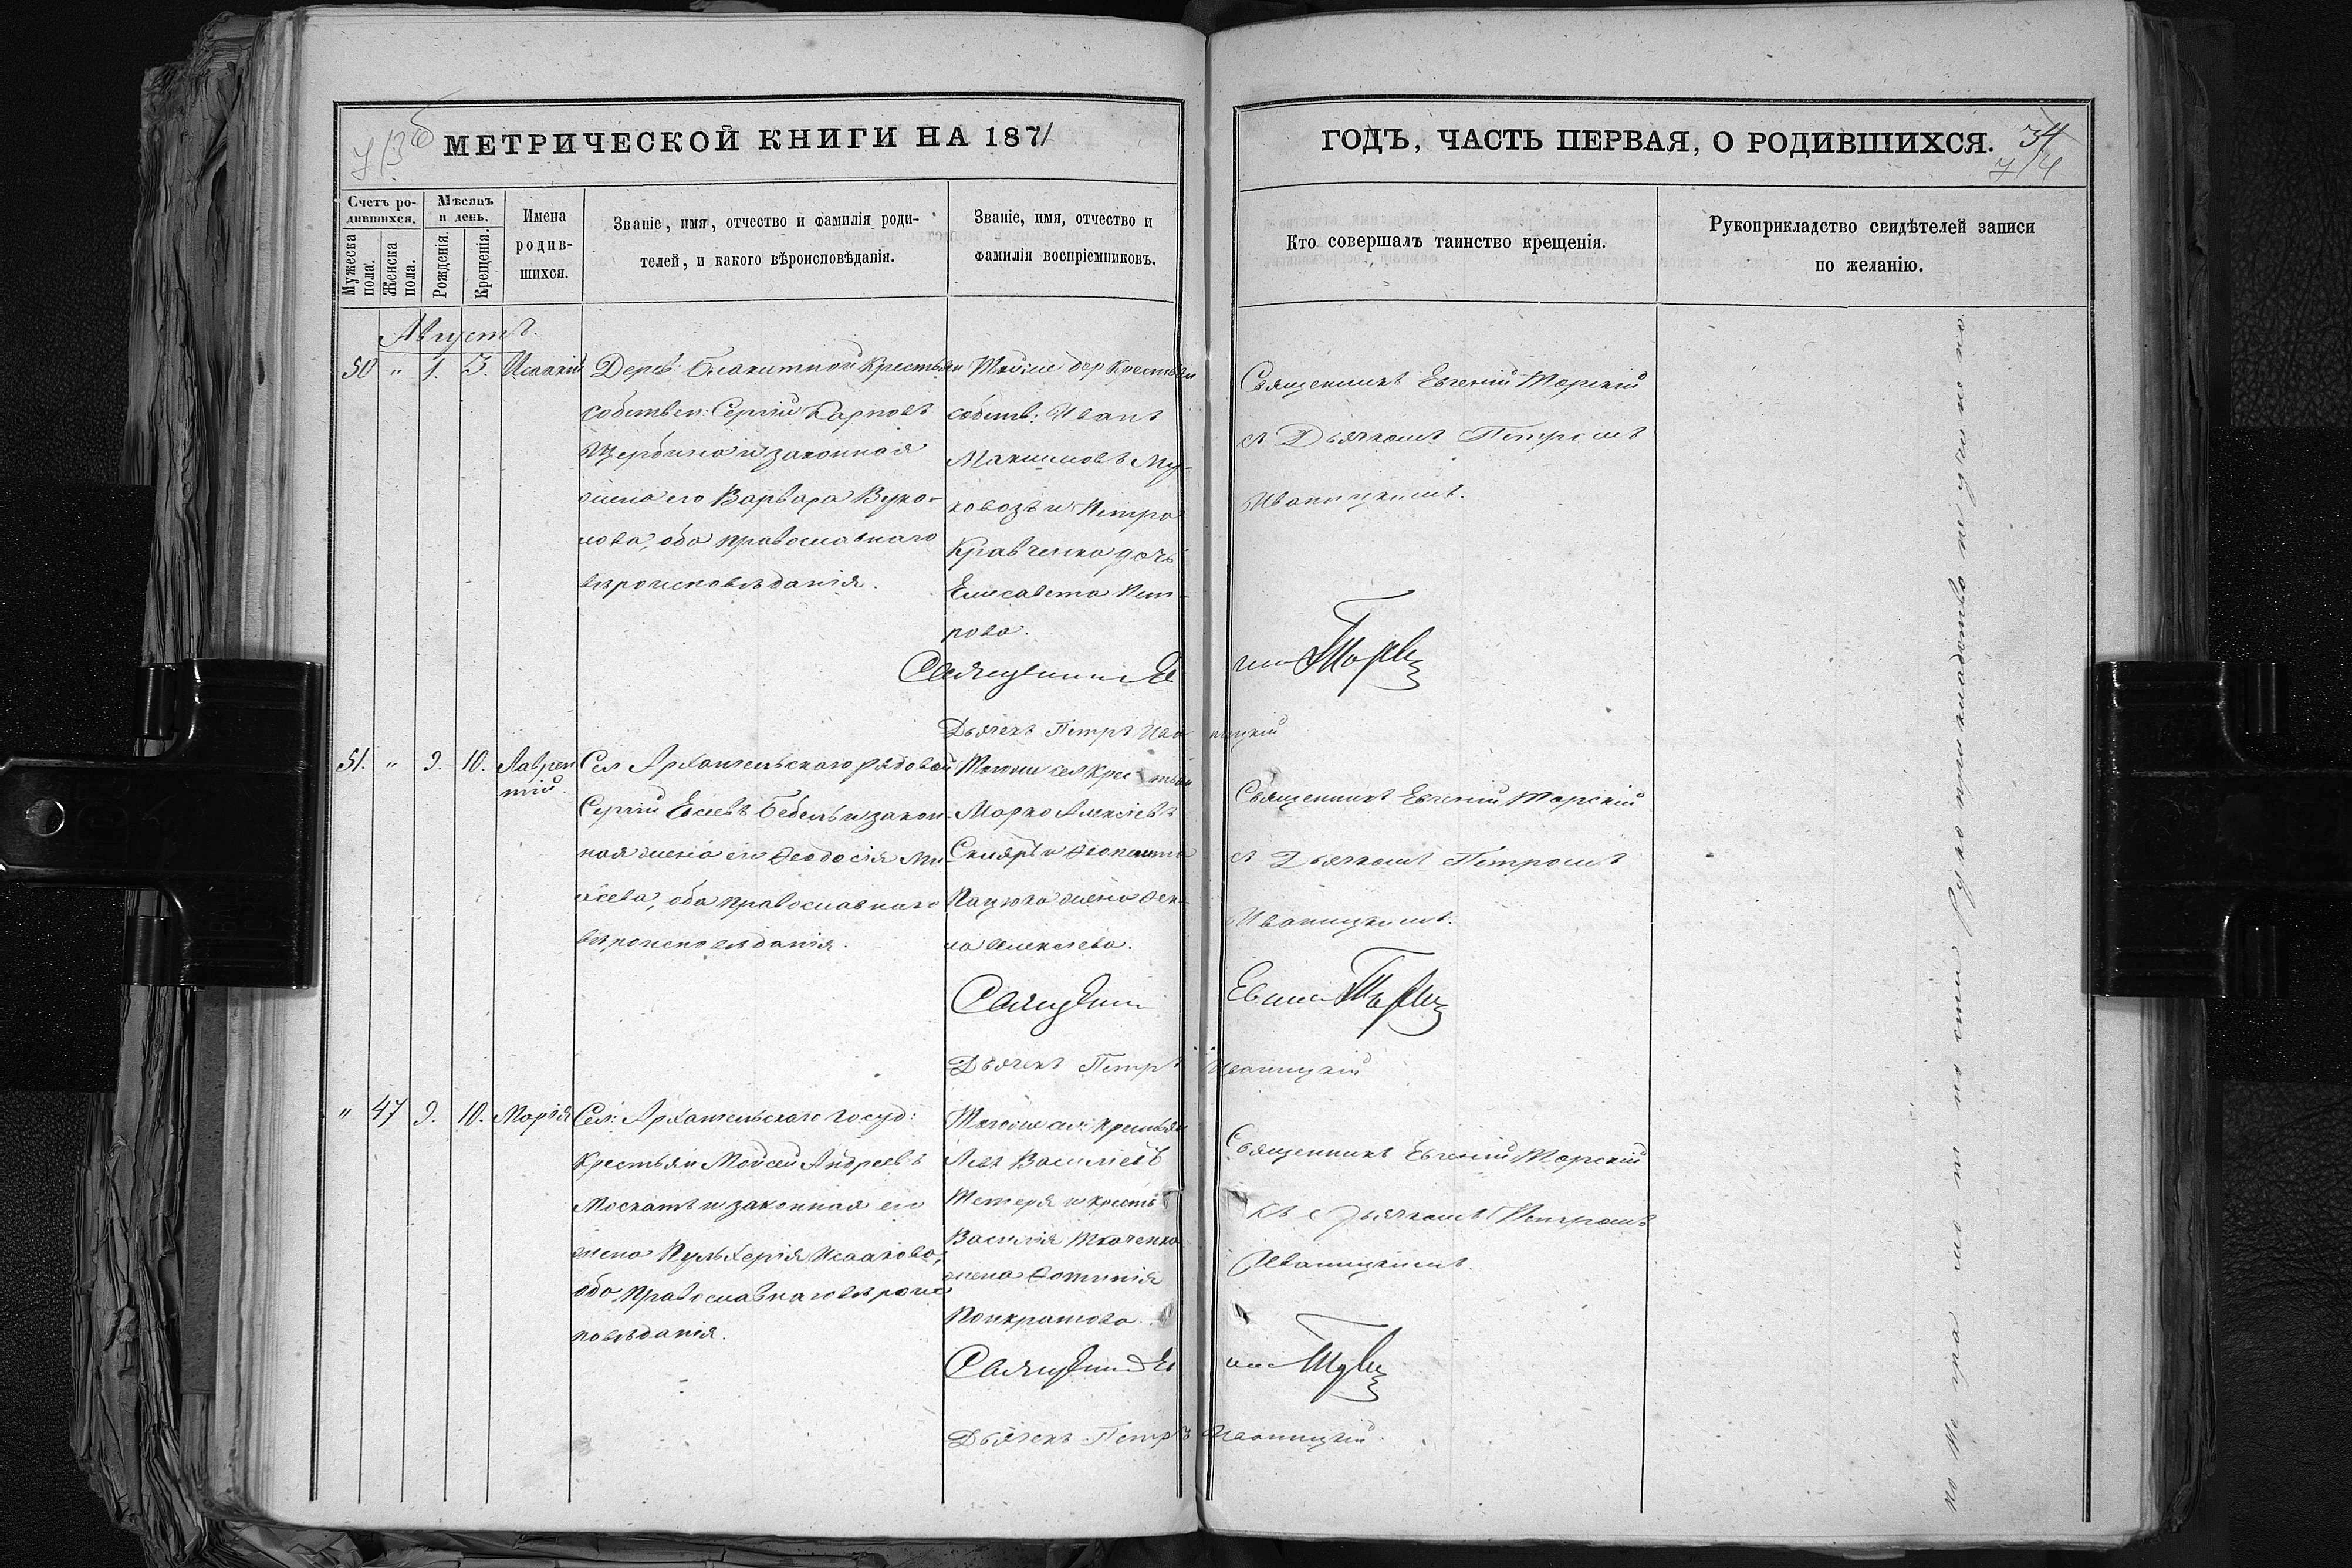 МЕТРИЧЕСКОЙ КНИГИ НА 1871
ГОДЪ, ЧАСТЬ ПЕРВАЯ, О РОДИВШИХСЯ.
34
Счетъ ро-
дившихся.
Мужеска
пола.
Женска
пола.
Мѣсяцъ
и день.
Рожденія.
Крещенія.
Имена
родив-
шихся.
Званіе, имя, отчество и фамилія роди-
телей, и какого вѣроисповѣданія.
Званіе, имя, отчество и
фамилія воспріемниковъ.
Кто совершалъ таинство крещенія.
Рукоприкладство свидѣтелей записи
по желанію.
Августъ.
50 " 1. 3. Исаакій
Дерев: Блакитной Крестьян
собствен: Сергій Карповъ
Щербина и законная
жена его Варвара Вуко-
лова, оба православнаго
вѣроисповѣданія.
Той же дер Крестьян
собств: Иванъ
Максимовъ Му-
ховозъ и Петра
Кравченка дочь
Елисавета Пет-
рова.
Священникъ Евгеній Торскій
съ Дьячкомъ Петромъ
Иваницкимъ.
Дьячекъ Петръ Иваницкій
51. " 9. 10. Лаврен
тій.
Сел Архангельскаго рядовой
Сергій Евсеевъ Бебель и закон-
ная жена его Ѳеодосія Ми-
хеева, оба православнаго
вѣроисповѣданія.
Тогоже сел Крестьян
Марко Алексіевъ
Скляръ и
Пацюка жена Ѳек-
ла Алексіева.
Священникъ Евгеній Торскій
съ Дьячкомъ Петромъ
Иваницкимъ.
Дьячекъ Петръ Иваницкій
" 47 9. 10. Марія
Сел: Архангельскаго Госуд:
Крестьян Моисей Андреевъ
Москатъ и законная его
жена Пульхерія Исаакова,
оба Православнаго вѣроис
повѣданія.
Тогоже сел: Крестьян
Левъ Василіевъ
Тетеря и Крестьян
Василія Ткаченка
жена Фотинія
Панкратова.
Священникъ Евгеній Торскій
съ Дьячкомъ Петромъ
Иваницкимъ.
Дьячекъ Петръ Иваницкій.
по неграмотности Рукоприкладство не учинено.